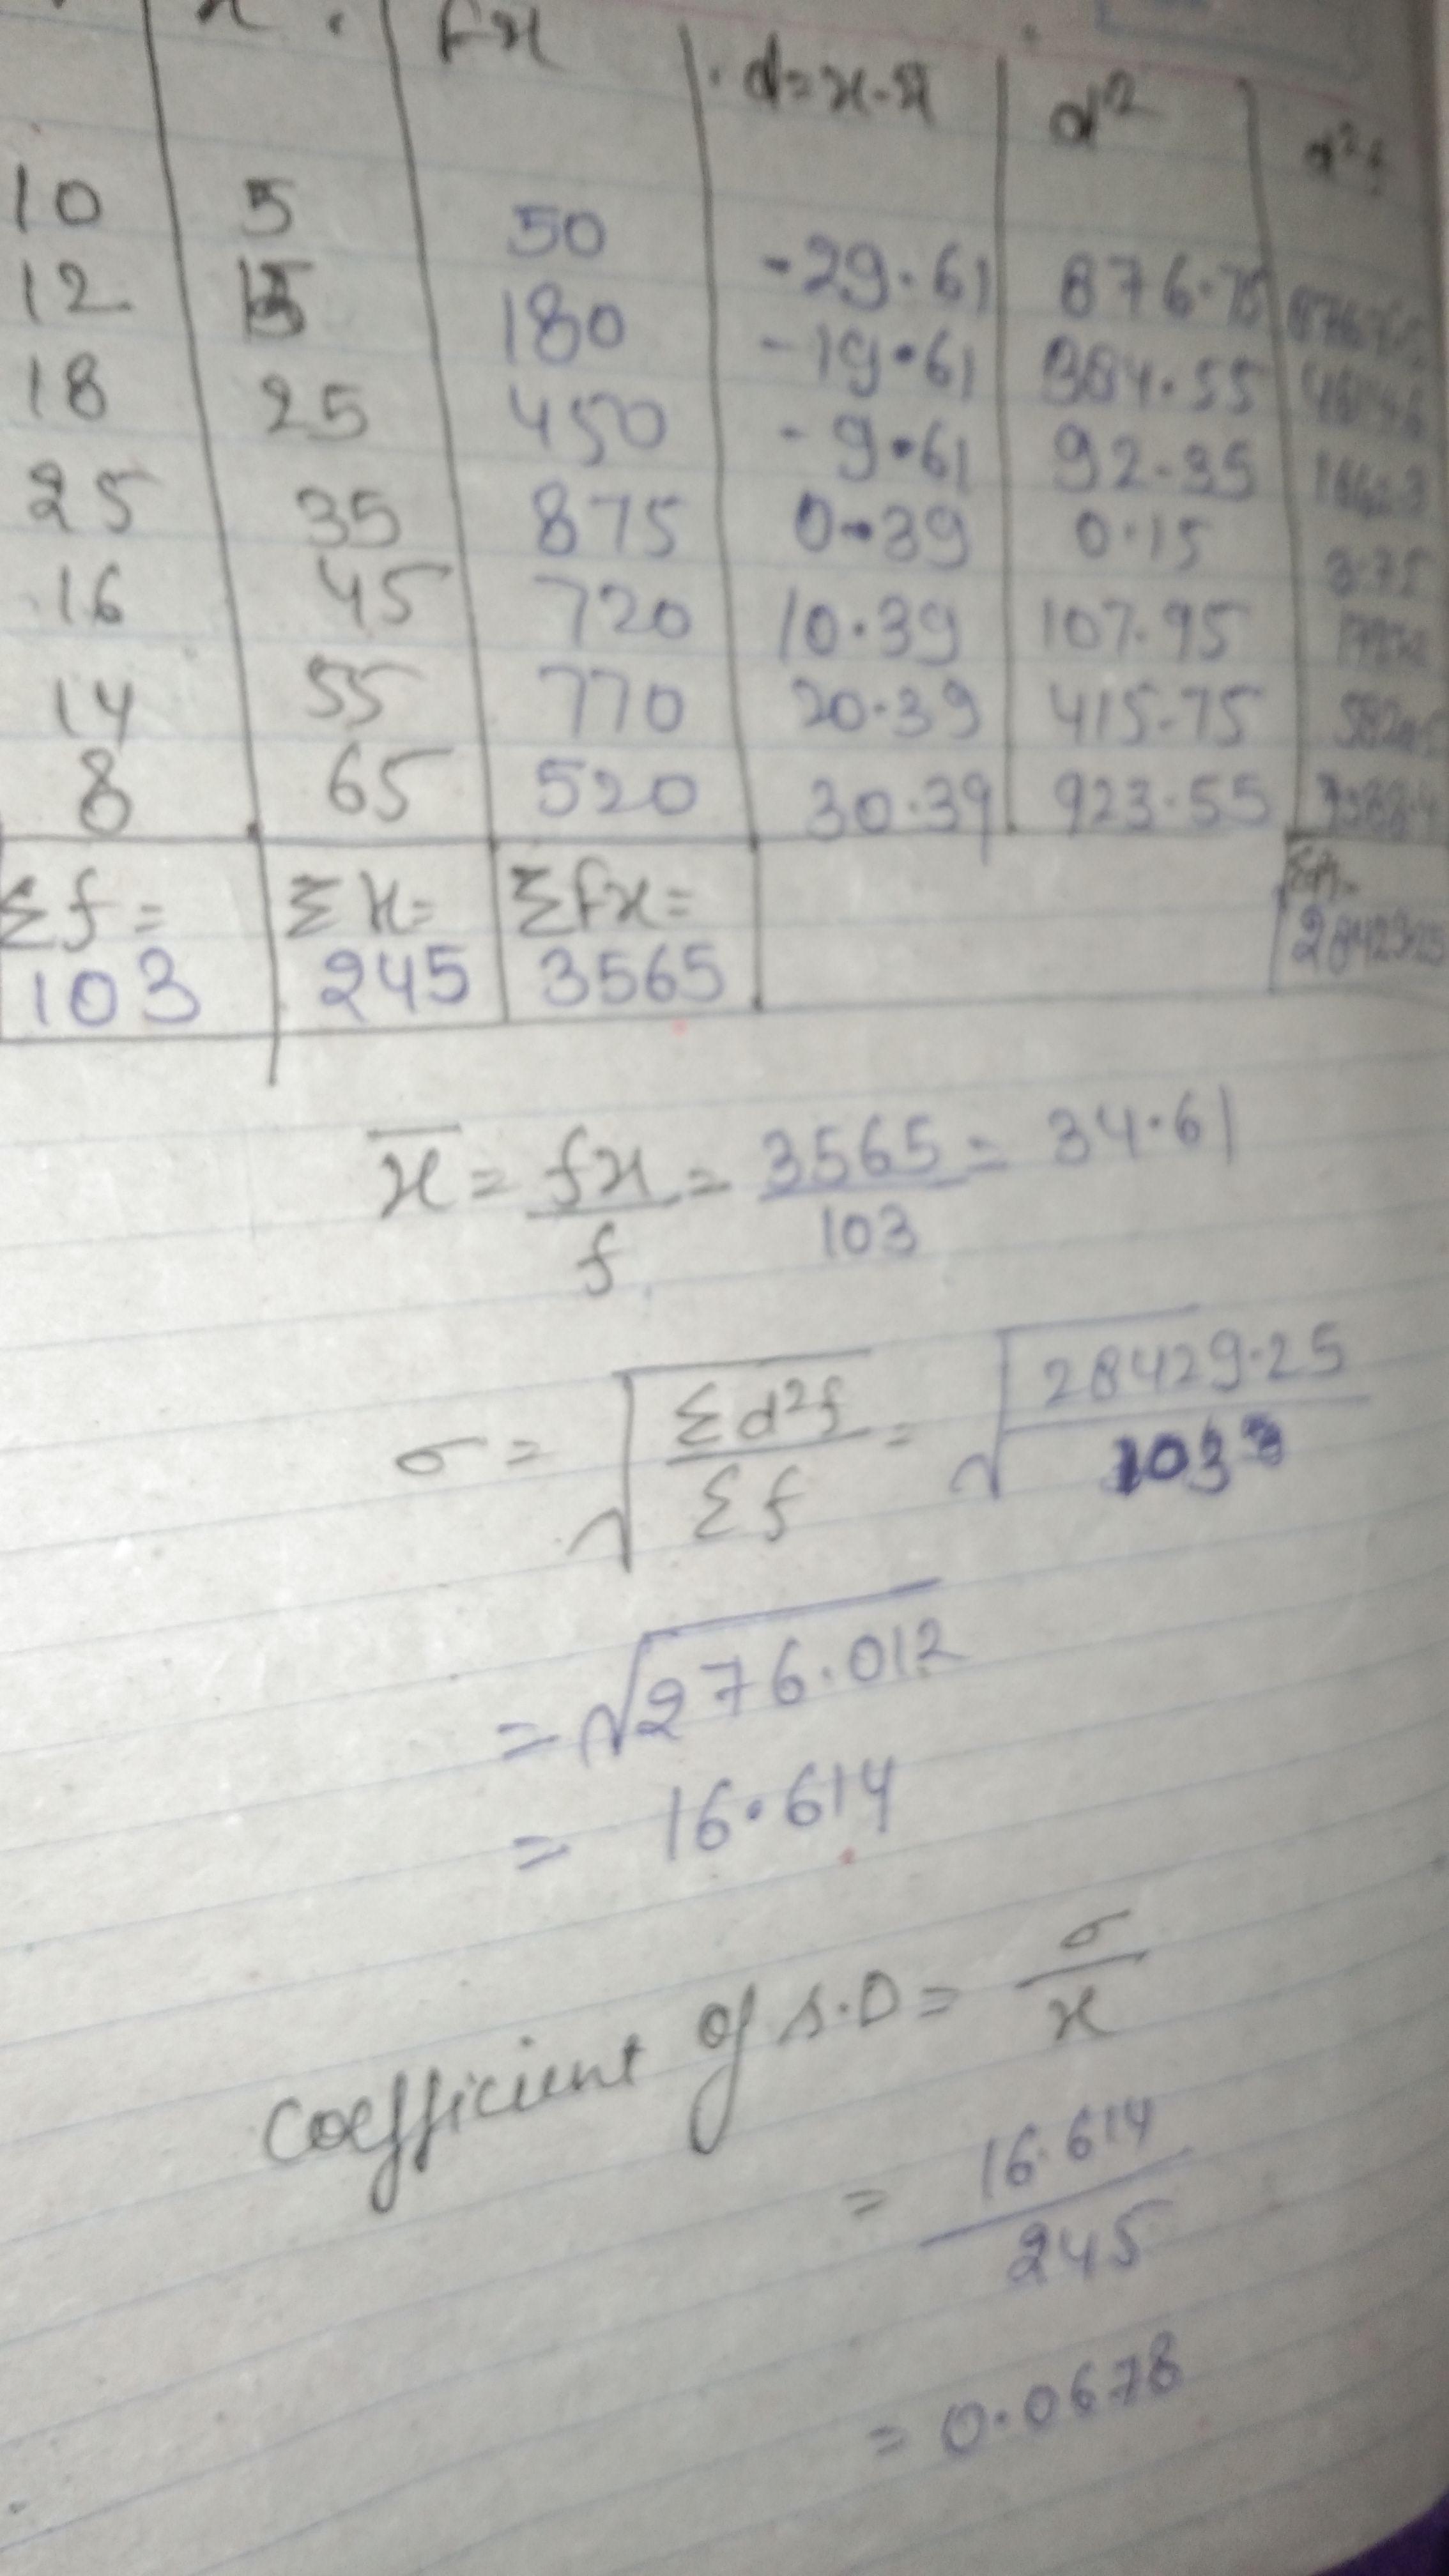 x . fx d=x-x̄ d² d²f
10 5 50 -29.61 876.75
12 15 180 -19.61 384.55
18 25 450 -9.61 92.35
25 35 875 0.39 0.15 3.75
16 45 720 10.39 107.95
14 55 770 20.39 415.75
8 65 520 30.39 923.55
Σf= Σx= Σfx=
103 245 3565
x̄ = fx/f = 3565/103 = 34.61
σ = √(Σd²f/Σf) = √(28429.25/103)
= √276.012
= 16.614
coefficient of S.D = σ/x
= 16.614/245
= 0.0678